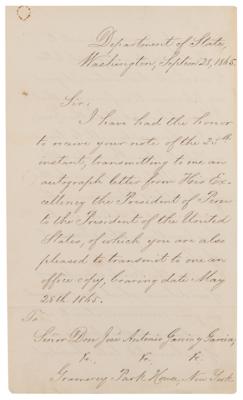 Department of State,
Washington, Septem 28, 1865.
Sir:
I have had the honor
to receive your note of the 25th
instant, transmitting to me an
autograph letter from His Ex-
cellency the President of Peru
to the President of the United
States, of which you are also
pleased to transmit to me an
office copy, bearing date May
28th 1865.
To
Señor Don José Antonio Garcia y Garcia,
&c. &c. &c.
Gramercy Park House, New York.